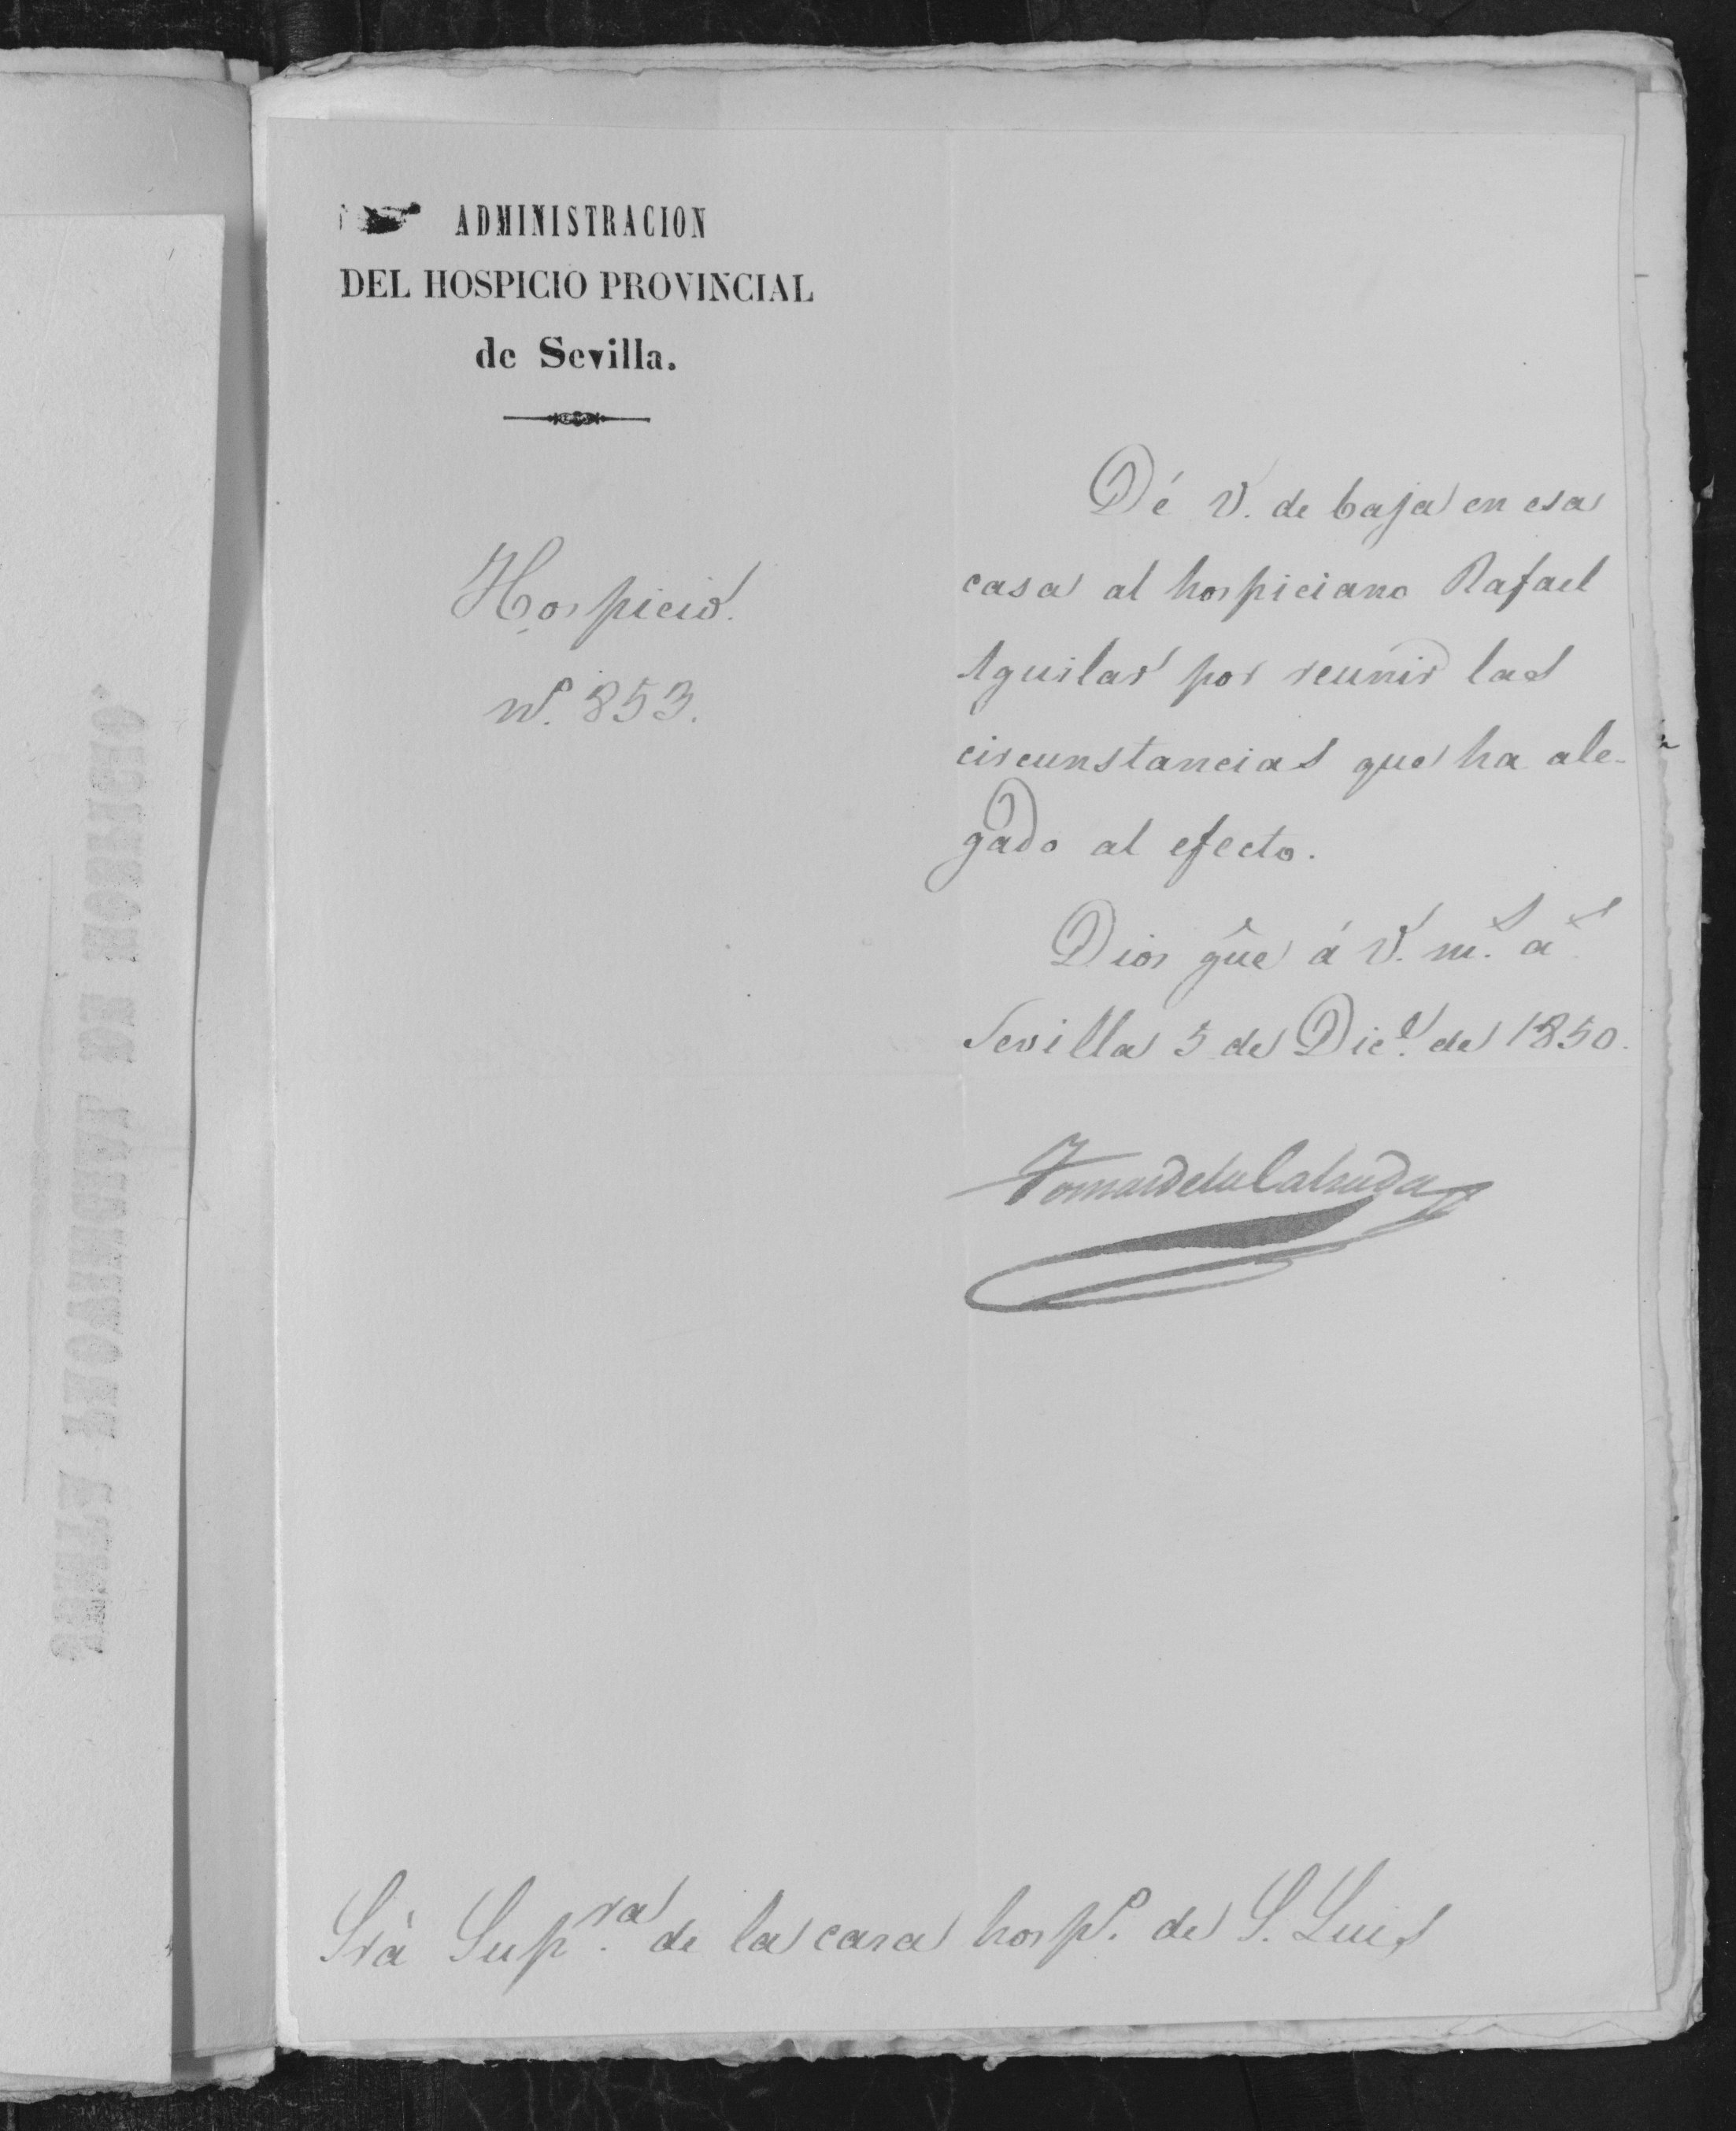 ADMINISTRACION
DEL HOSPICIO PROVINCIAL
de Sevilla.
Hospicio.
nº. 853.
Dé V. de baja en esa
casa al hospiciano Rafael
Aguilar por reunir las
circunstancias que ha ale-
gado al efecto.
Dios gûe á V. mˢ. aˢ
Sevilla 5 de Dicᵉ. de 1850.
Tomas de la Calzada
Srà Supʳᵃ. de la casa hospº. de S. Luis